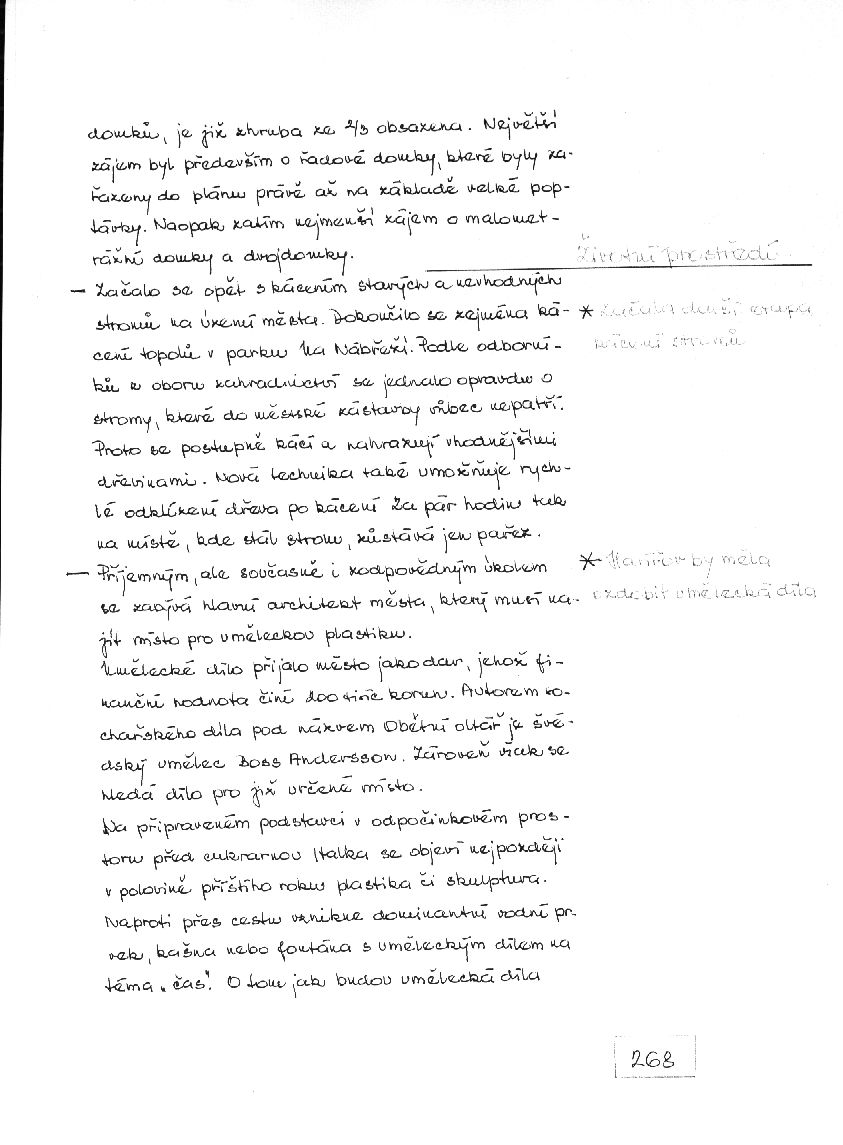 domků, je již zhruba ze 2/3 obsazena. Největší
zájem byl především o řadové domky, které byly za-
řazeny do plánu právě až na základě velké pop-
távky. Naopak zatím nejmenší zájem o malomet-
rážní domky a dvojdomky.
Životní prostředí
— Začalo se opět s kácením starých a nevhodných
stromů na území města. Dokončilo se zejména ká-
* Začala další etapa
cení topolů v parku Na Nábřeží. Podle odborní-
kácení stromů
ků v oboru zahradnictví se jednalo opravdu o
stromy, které do městské zástavby vůbec nepatří.
Proto se postupně kácí a nahrazují vhodnějšími
dřevinami. Nová technika také umožňuje rych-
lé odklízení dřeva po kácení. Za pár hodin tak
na místě, kde stál strom, zůstává jen pařez.
— Příjemným, ale současně i zodpovědným úkolem
* Havířov by měla
se zaobývá hlavní architekt města, který musí na-
ozdobit umělecká díla
jít místo pro uměleckou plastiku.
Umělecké dílo přijalo město jako dar, jehož fi-
nanční hodnota činí 200 tisíc korun. Autorem so-
chařského díla pod názvem Obětní oltář je švé-
dský umělec Boss Andersson. Zároveň však se
hledá dílo pro již určené místo.
Na připraveném podstavci v odpočinkovém pros-
toru před cukrárnou Italka se objeví nejpozději
v polovině příštího roku plastika či skulptura.
Naproti přes cestu vznikne dominantní vodní pr-
vek, kašna nebo fontána s uměleckým dílem na
téma „čas". O tom jak budou umělecká díla
268